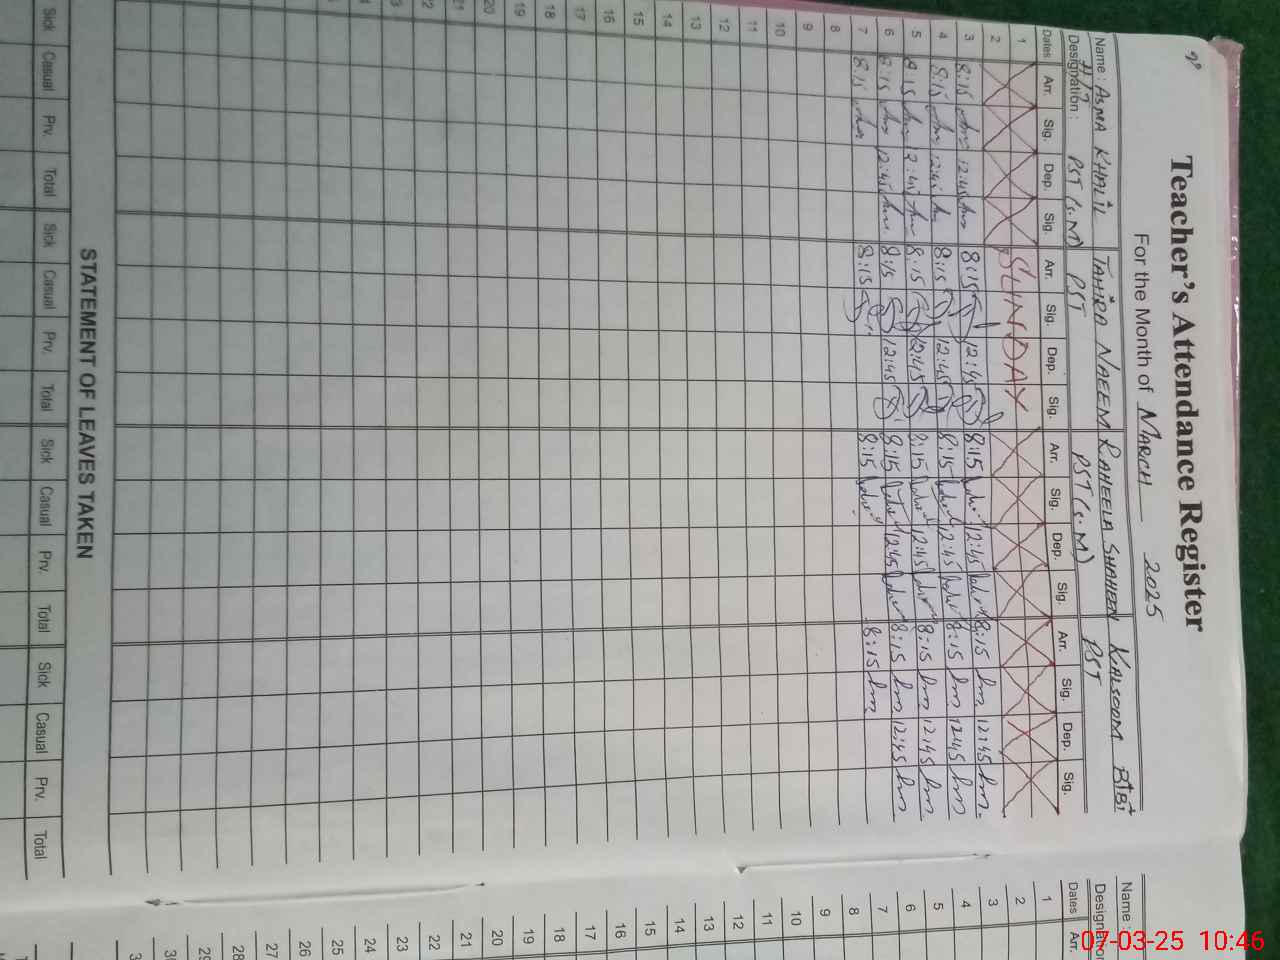 Teacher's Attendance Register
For the Month of MARCH 2025
Name : ASMA KHALIL TAHIRA NAEEM RAHEELA SHAHEEN KALSOOM BIBI
Designation : PST (S.M) PST PST (S.M) PST
Dates Arr. Sig. Dep. Sig. Arr. Sig. Dep. Sig. Arr. Sig. Dep. Sig. Arr. Sig. Dep. Sig.
1
2 SUNDAY
3 8:15 12:45 8:15 12:45 8:15 12:45 8:15 12:45
4 8:15 12:45 8:15 12:45 8:15 12:45 8:15 12:45
5 8:15 12:45 8:15 12:45 8:15 12:45 8:15 12:45
6 8:15 12:45 8:15 12:45 8:15 12:45 8:15 12:45
7 8:15 8:15 8:15 8:15
8
9
10
11
12
13
14
15
16
17
18
19
20
21
22
STATEMENT OF LEAVES TAKEN
Sick Casual Prv. Total Sick Casual Prv. Total Sick Casual Prv. Total Sick Casual Prv. Total
Name :
Dates Arr.
1
2
3
4
5
6
7
8
9
10
11
12
13
14
15
16
17
18
19
20
21
22
23
24
25
26
27
28
29
30
07-03-25 10:46